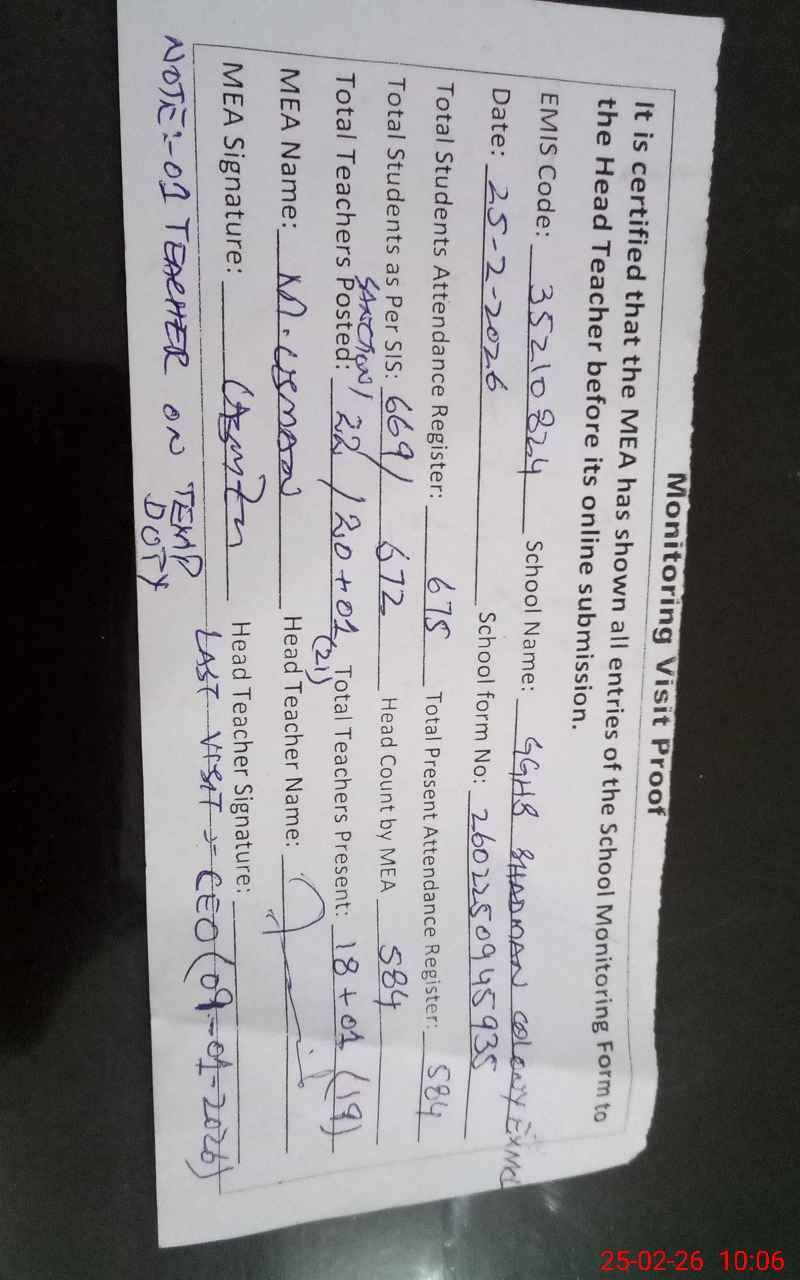 Monitoring Visit Proof
It is certified that the MEA has shown all entries of the School Monitoring Form to
the Head Teacher before its online submission.
EMIS Code: 35210824 School Name: GGHS SHADMAN COLONY EXNCL
Date: 25-2-2026 School form No: 260225094593S
Total Students Attendance Register: 675 Total Present Attendance Register: 584
Total Students as Per SIS: 669/ 672 Head Count by MEA 584
SANCTION/
Total Teachers Posted: 22 / 20+01 (21) Total Teachers Present: 18+01 (19)
MEA Name: M. USMAN Head Teacher Name:
MEA Signature: Head Teacher Signature:
LAST VISIT :- CEO (09-01-2026)
NOTE:- 01 TEACHER ON TEMP
DOTY
25-02-26 10:06